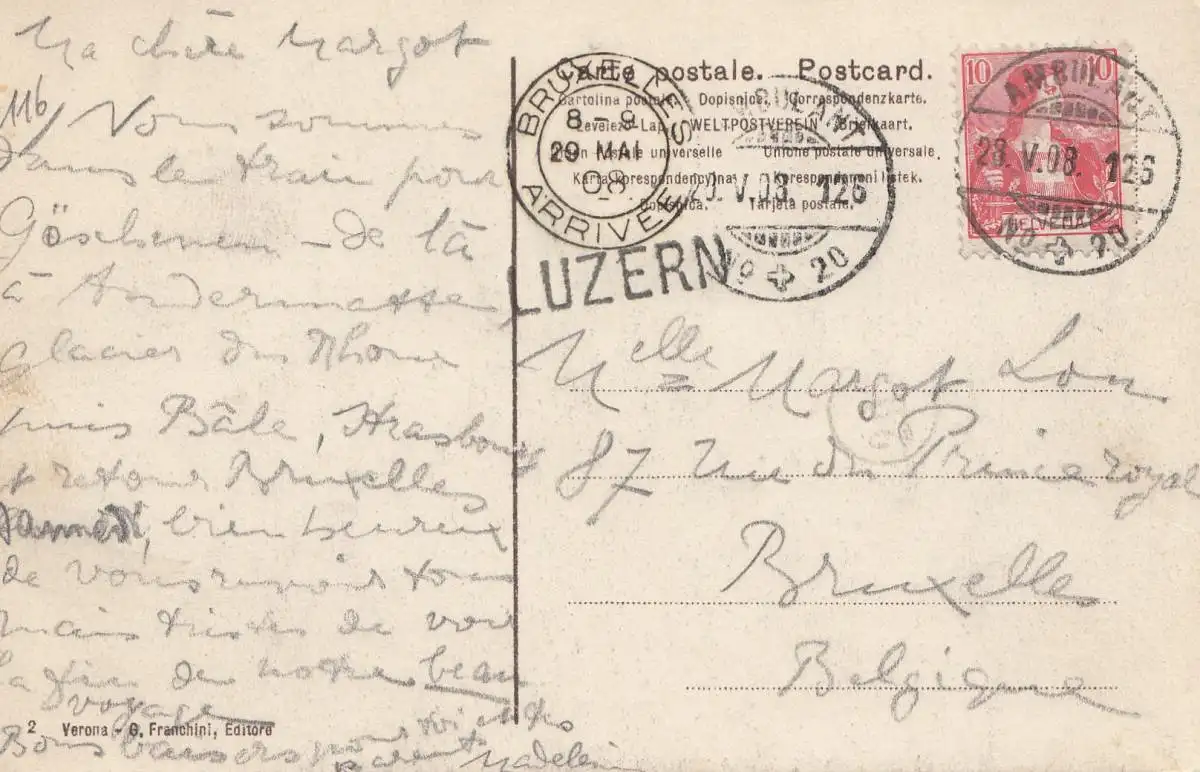 Ma chère Margot
116
Nous sommes
dans le train pour
Göschenen - de là
à Andermatten
Glacier du Rhone
puis Bâle, Strasbourg
et retour Bruxelles
Samedi, bien heureux
de vous revoir tous
mais tristes de voir
la fin de notre beau
voyage
Bons baisers pour vous et tes
parents Madeleine
2 Verona - G. Franchini, Editore
Carte postale. Postcard.
Cartolina postale. Dopisnice. Correspondenzkarte.
Levelező-Lap. WELTPOSTVEREIN Briefkaart.
Union postale universelle Unione postale universale.
Karta korespondencyjna. Korespondencni listek.
Dopisnica. Tarjeta postale.
BRUXELLES
8-9
29 MAI
08
ARRIVEE
AMBULANT
28.V.08. 126
No 20
LUZERN
10 10
HELVETIA
AMBULANT
28.V.08. 126
No 20
Melle Margot Lou
87 rue du Prince royal
Bruxelles
Belgique